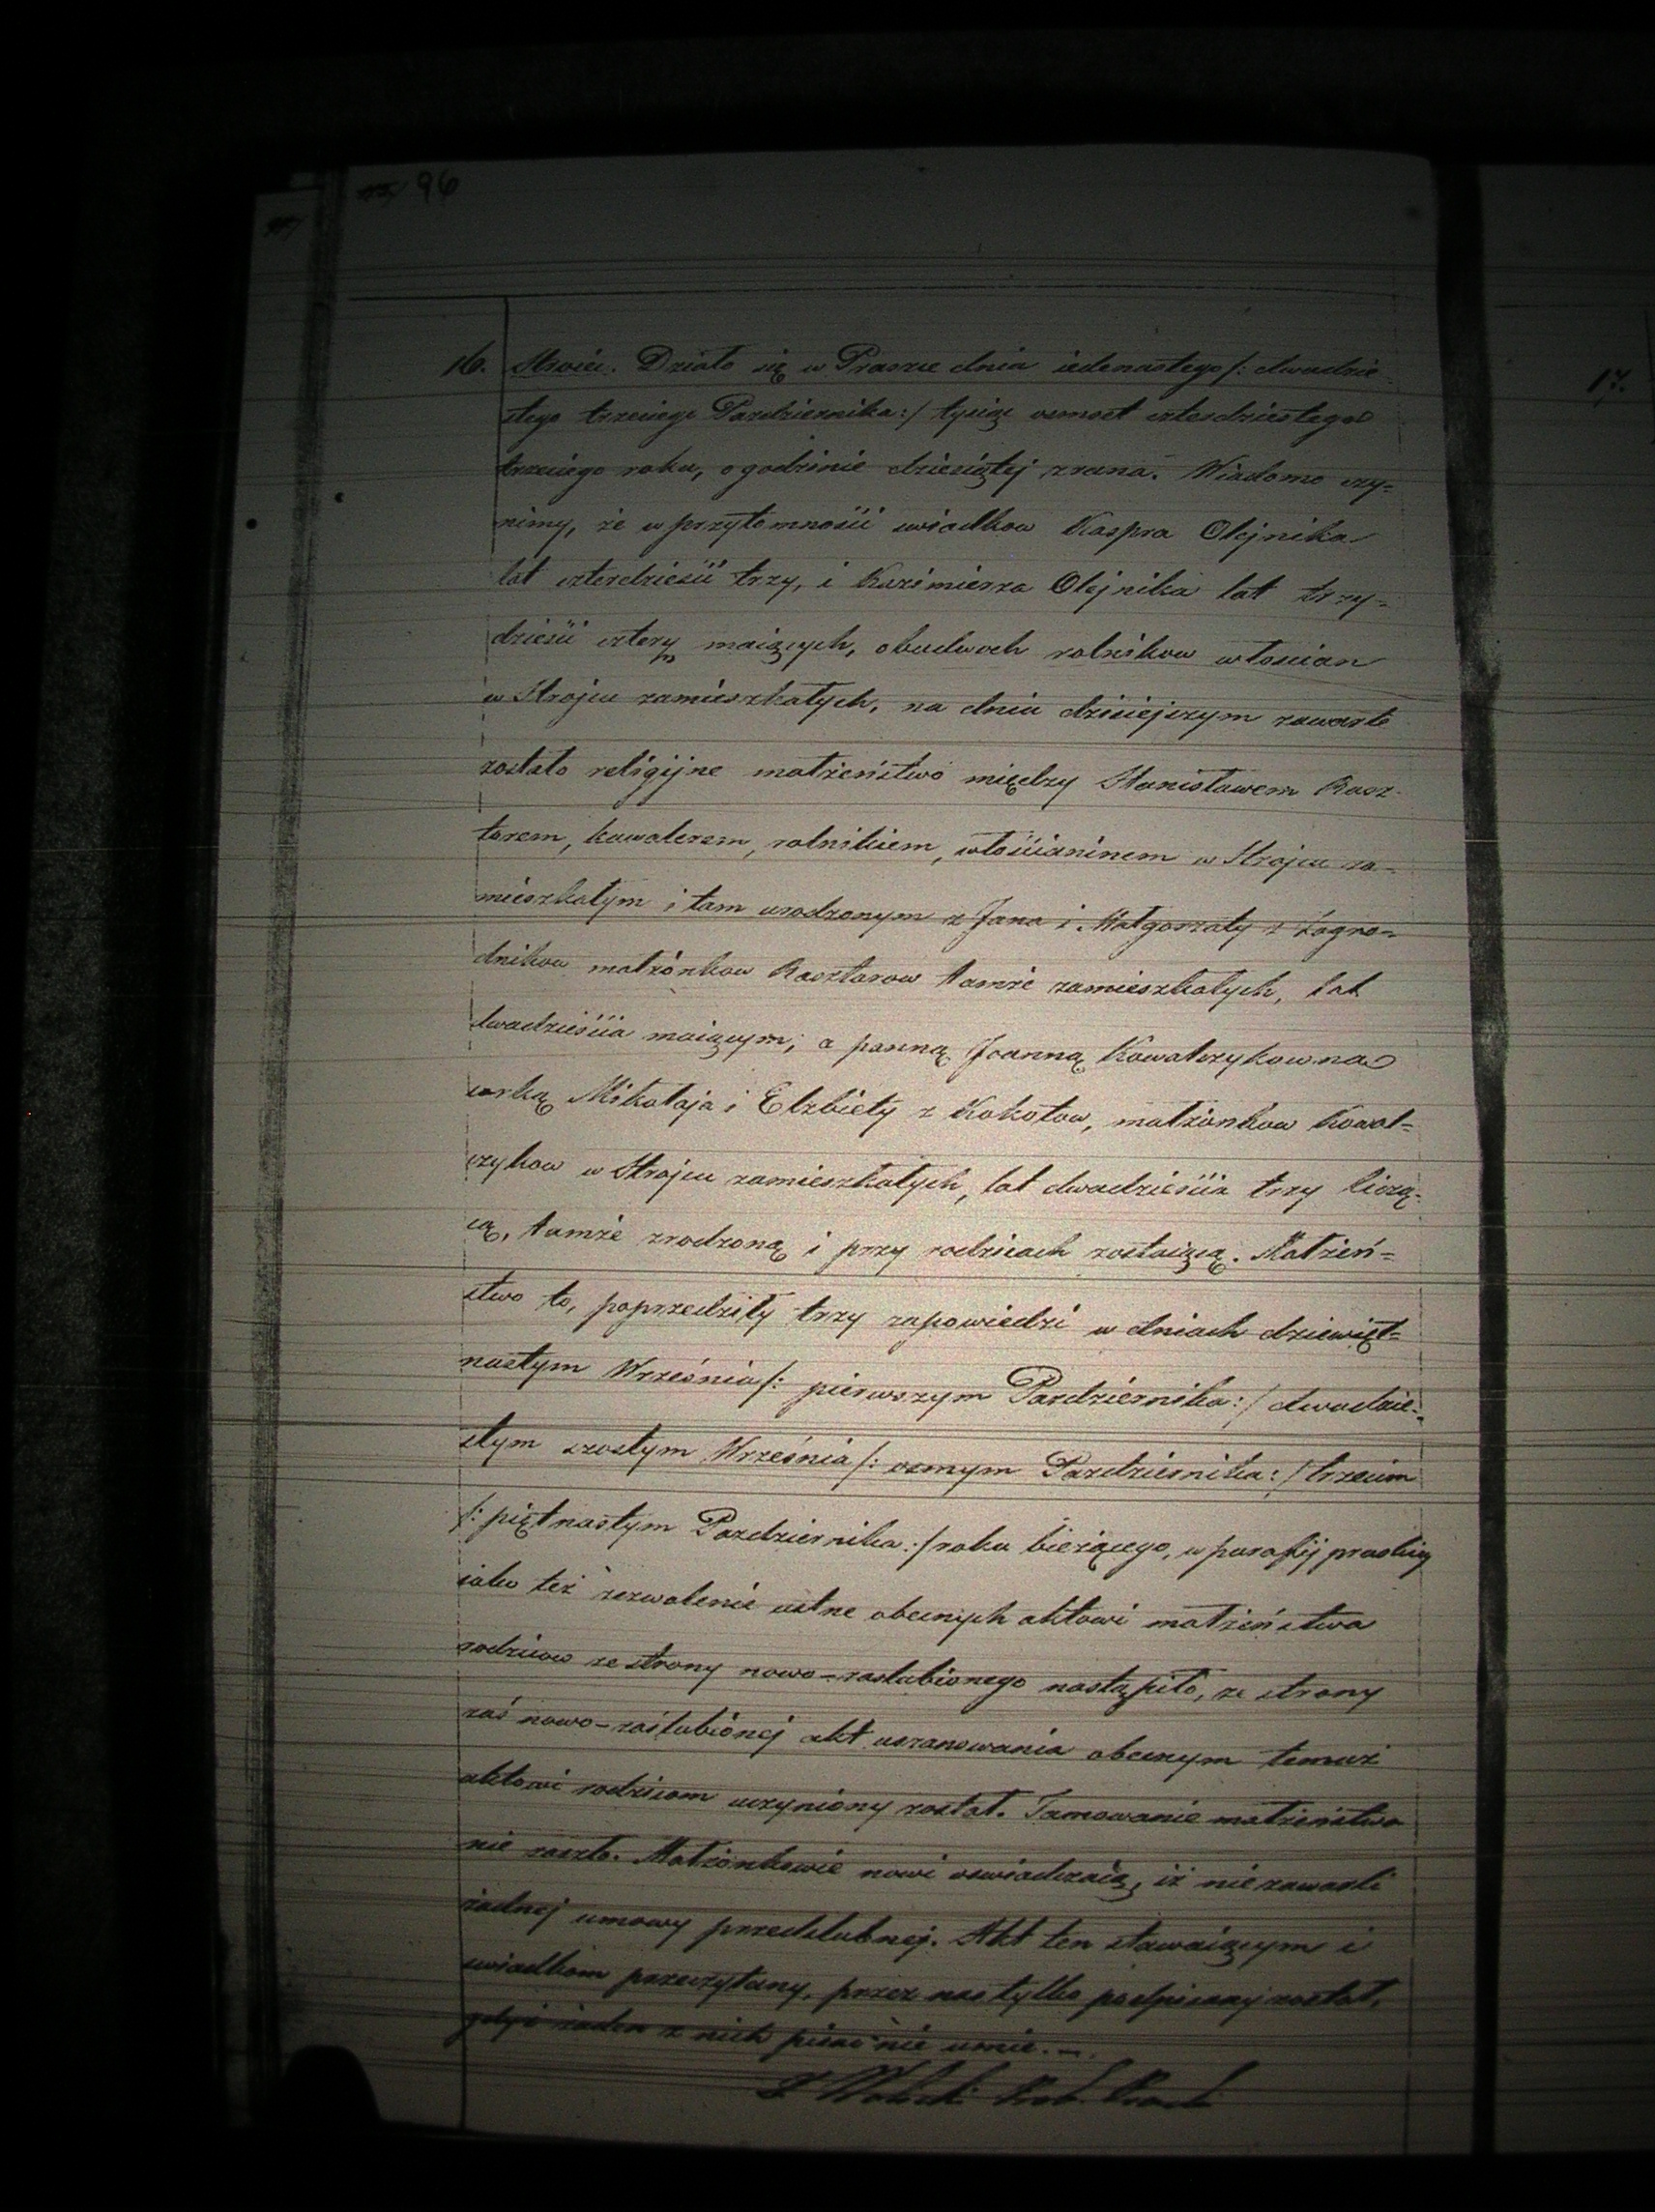 96
16. Stroiec. Działo się w Praszce dnia iedenastego /: dwudzie-
stego trzeciego Pazdziernika :/ tysiąc osmset czterdziestego
trzeciego roku, o godzinie dziesiątej zrana. Wiadomo czy-
nimy, że w przytomności swiadkow Kaspra Olejnika
lat czterdzieści trzy, i Kazimierza Olejnika lat trzy-
dzieści cztery maiących, obudwoch rolnikow włoscian
w Strojcu zamieszkałych, na dniu dzisiejszym zawarte
zostało religijne małżeństwo między Stanisławem Kasz-
torem, kawalerem, rolnikiem, włościaninem w Strojcu za-
mieszkałym i tam urodzonym z Jana i Małgorzaty z Zagro-
dnikow małżonkow Kasztorow tamże zamieszkałych, lat
dwadzieścia maiącym; a panną Joanną Kowalczykowna
corką Mikołaja i Elzbiety z Kokotow, małżonkow Kowal-
czykow w Strojcu zamieszkałych, lat dwadzieścia trzy liczą-
cą, tamże zrodzoną i przy rodzicach zostaiącą. Małżeń-
stwo to, poprzedziły trzy zapowiedzi w dniach dziewięt-
nastym Września /: pierwszym Pazdziernika :/ dwudzie-
stym szostym Września /: osmym Pazdziernika :/ trzecim
/: piętnastym Pazdziernika :/ roku bieżącego, w parafij
iako też zezwolenie ustne obecnych aktowi małżeństwa
rodzicow ze strony nowo-zaslubionego nastąpiło, ze strony
zaś nowo-zaślubionej akt uszanowania obecnym temuż
aktowi rodzicom uczyniony został. Tamowanie małżeństwa
nie zaszło. Małżonkowie nowi oswiadczaią, iż nie zawarli
żadnej umowy przedslubnej. Akt ten stawaiącym i
swiadkom przeczytany, przez nas tylko podpisany został,
gdyż żaden z nich pisać nie umie. —
17.